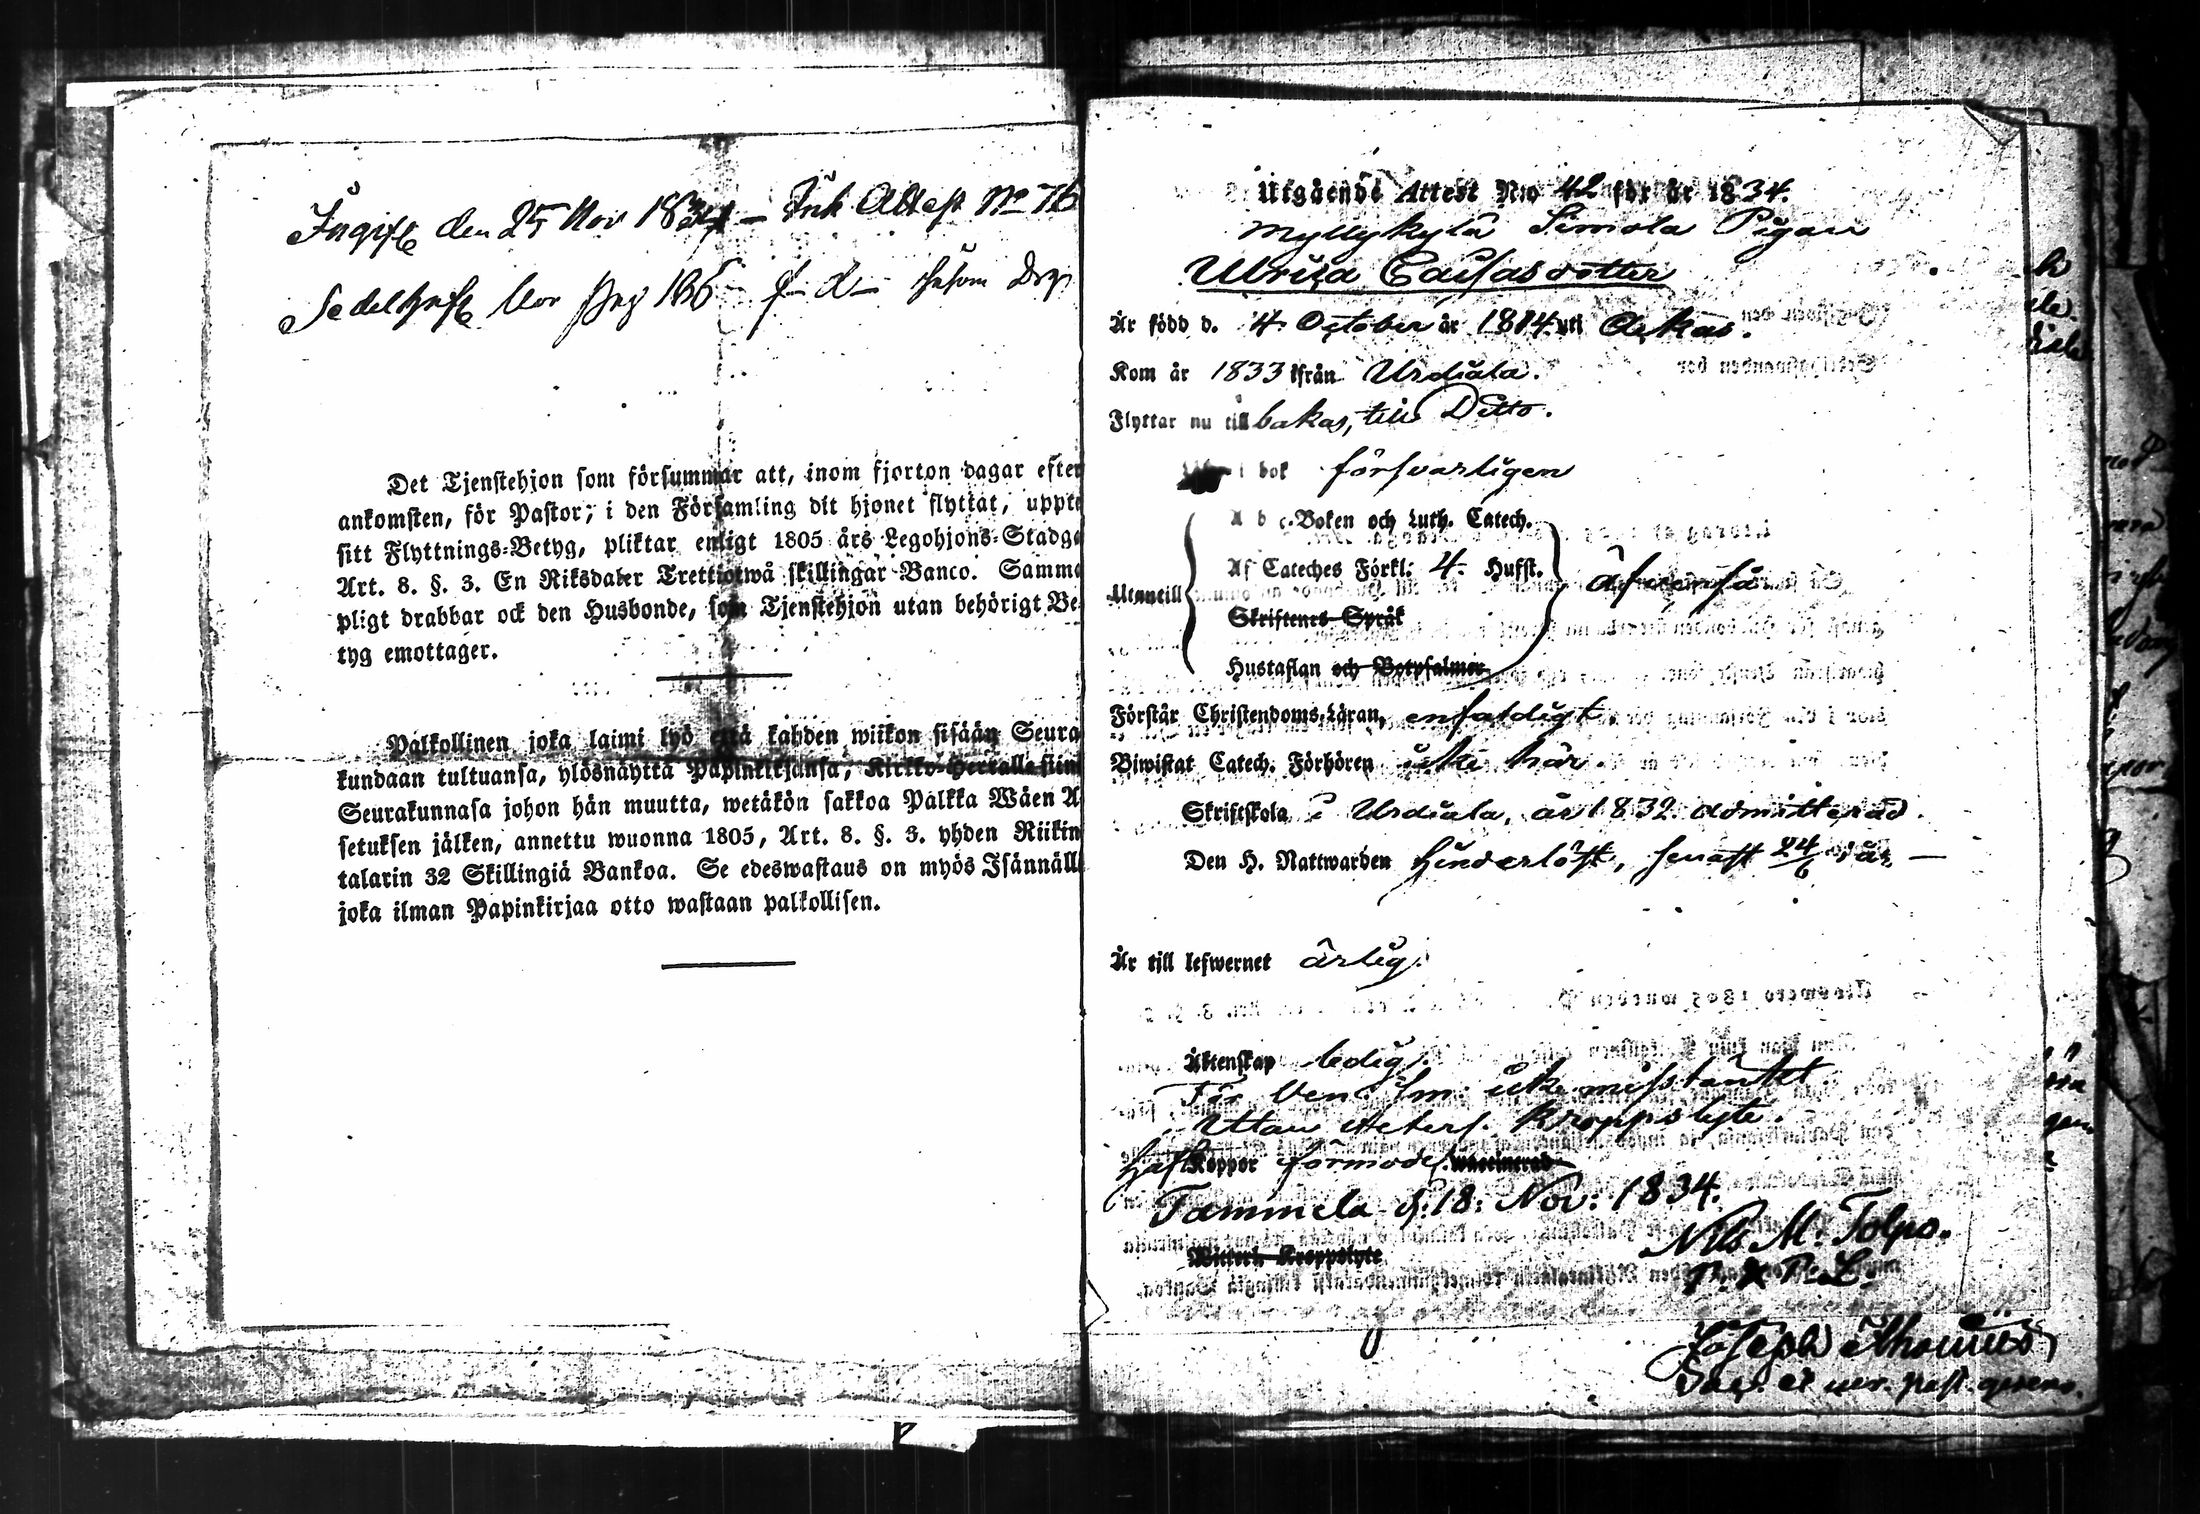 Ingift den 25 Nov 1834 – Ink Attest No 76
Det Tjenstehjon som försummar att, inom fjorton dagar efter
ankomsten, för Pastor, i den Församling dit hjonet flyttat, uppte
sitt Flyttnings-Betyg, pliktar enligt 1805 års Legohjons-Stadga
Art. 8. §. 3. En Riksdaler Trettiotwå skillingar Banco. Samma
pligt drabbar ock den Husbonde, som Tjenstehjon utan behörigt Be-
tyg emottager.
Palkollinen joka laimi lyö että kahden wiikon sisään Seura
kundaan tultuansa, ylösnäyttä Papinkirjansa, Kirkko-Herralle siinä
Seurakunnasa johon hän muutta, wetäkön sakkoa Palkka Wäen A
setuksen jälken, annettu wuonna 1805, Art. 8. §. 3. yhden Riikin
talarin 32 Skillingiä Bankoa. Se edeswastaus on myös Isännällä
joka ilman Papinkirjaa otto wastaan palkollisen.
Utgående Attest N:o 42 för år 1834.
Myllykylä Simola Pigan
Ulrica Caisasdotter
Är född d. 4 October år 1814 uti
Kom år 1833 ifrån Urdiala.
Flyttar nu tillbakas, till Ditto.
i bok försvarligen
A b c-Boken och Luth. Catech.
Af Cateches Förkl: 4. Hufst.
Utantill
Skriftenes Språk
Hustaflan och Botpsalmer
Förstår Christendoms Läran, enfaldigt.
Biwistat Catech. Förhören icke här.
Skriftskola i Urdiala, år 1832 admitterad.
Den H. Nattwarden hinderlöst, senast 24/6 d. år. –
Är till lefwernet ärlig.
Äktenskap ledig.
För Ven. Sm. icke misstänkt.
Utan kroppslyte.
Haft Koppor förmodl. waccinerad
Tammela d. 18. Nov: 1834.
Witterl. Kroppslyte
Nils M. Tolpo.
Joseph